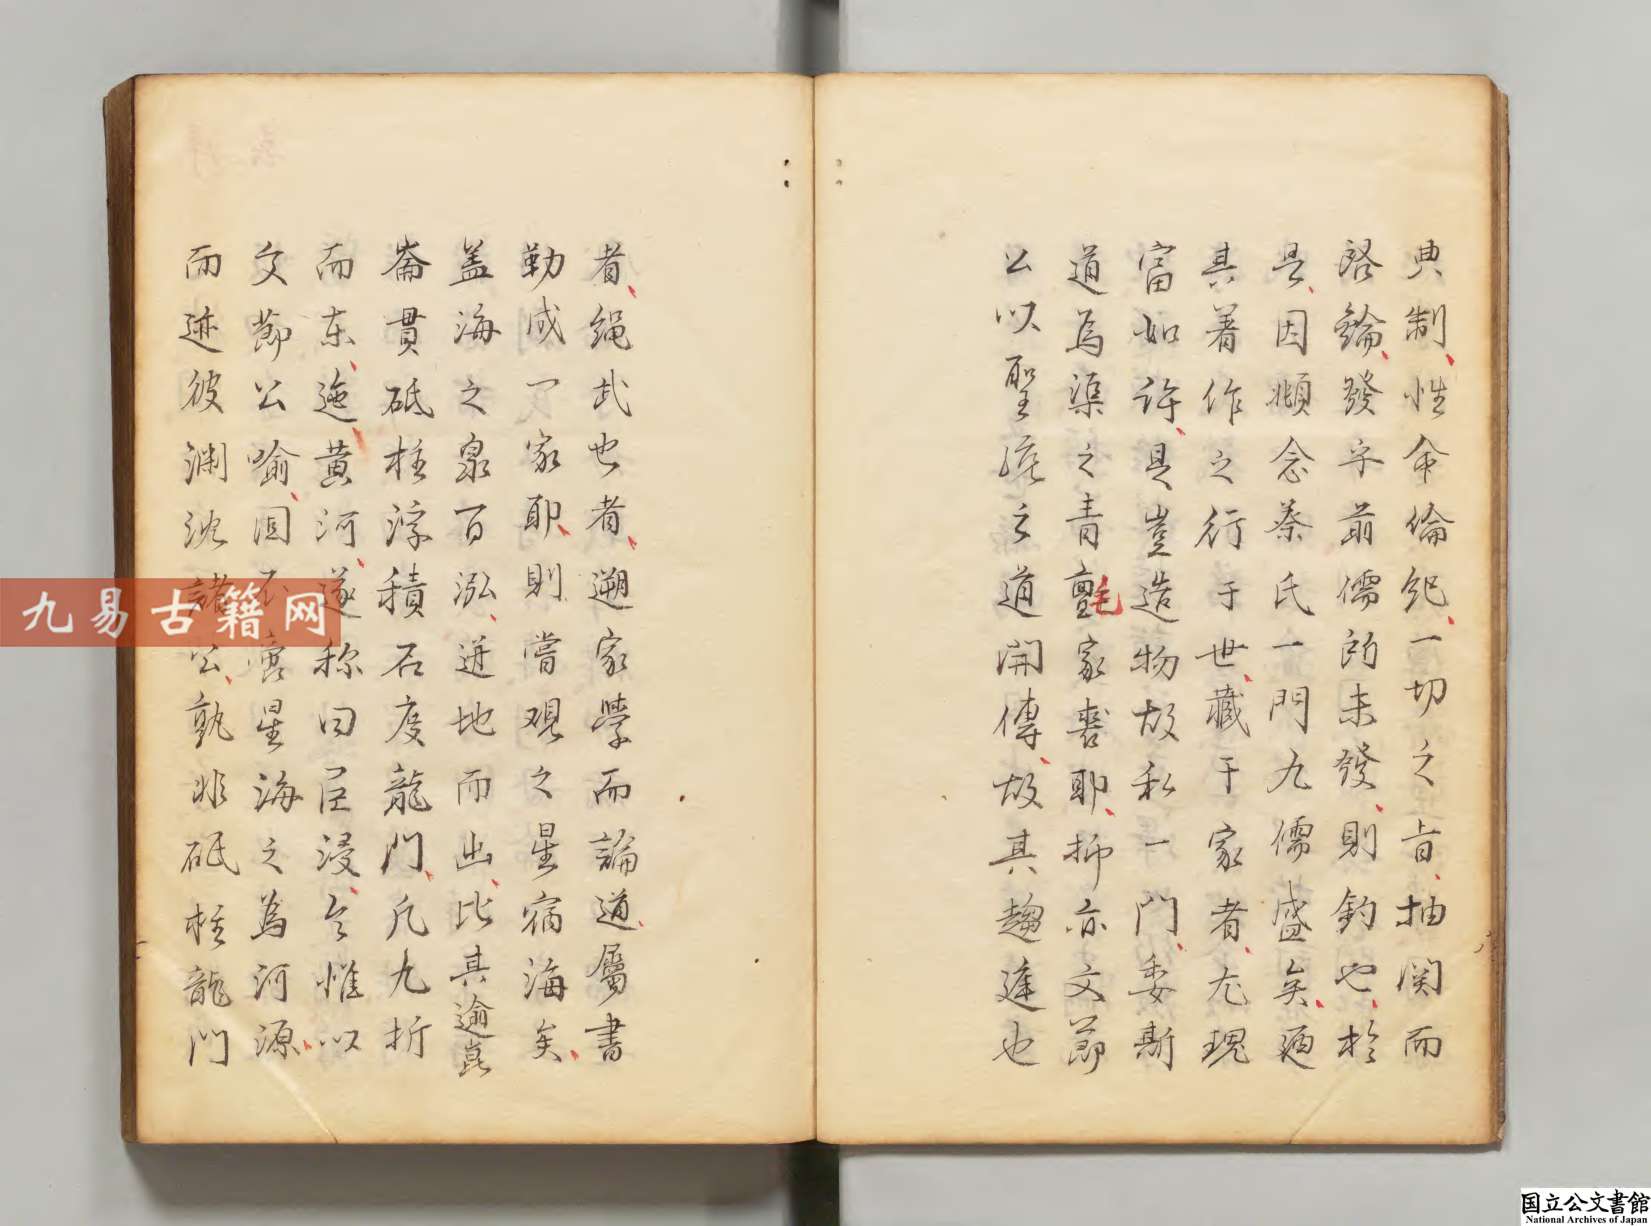 典制性命倫紀一切之旨抽関而
啓鑰發字前儒所未發則鈞也於
是因頫念蔡氏一門九儒盛矣廼
其著作之行于世藏于家者尤瑰
富如許是豈造物故私一門委斯
道為渠之青氊家氊耶抑亦文莭
公以聖統之道開傳故其趨進也
者繩武也者遡家學而論道屬書
勒成一家耶則嘗观之星宿海矣
盖海之泉百泓迸地而出比其逾崑
崙貫砥柱浮積石度龍門凢九折
而东迤黄河遂称曰巨浸今惟以
文莭公喻固不啻星海之為河源
而迹彼渊沈諸公孰非砥柱龍門
九易古籍网
国立公文書館
National Archives of Japan